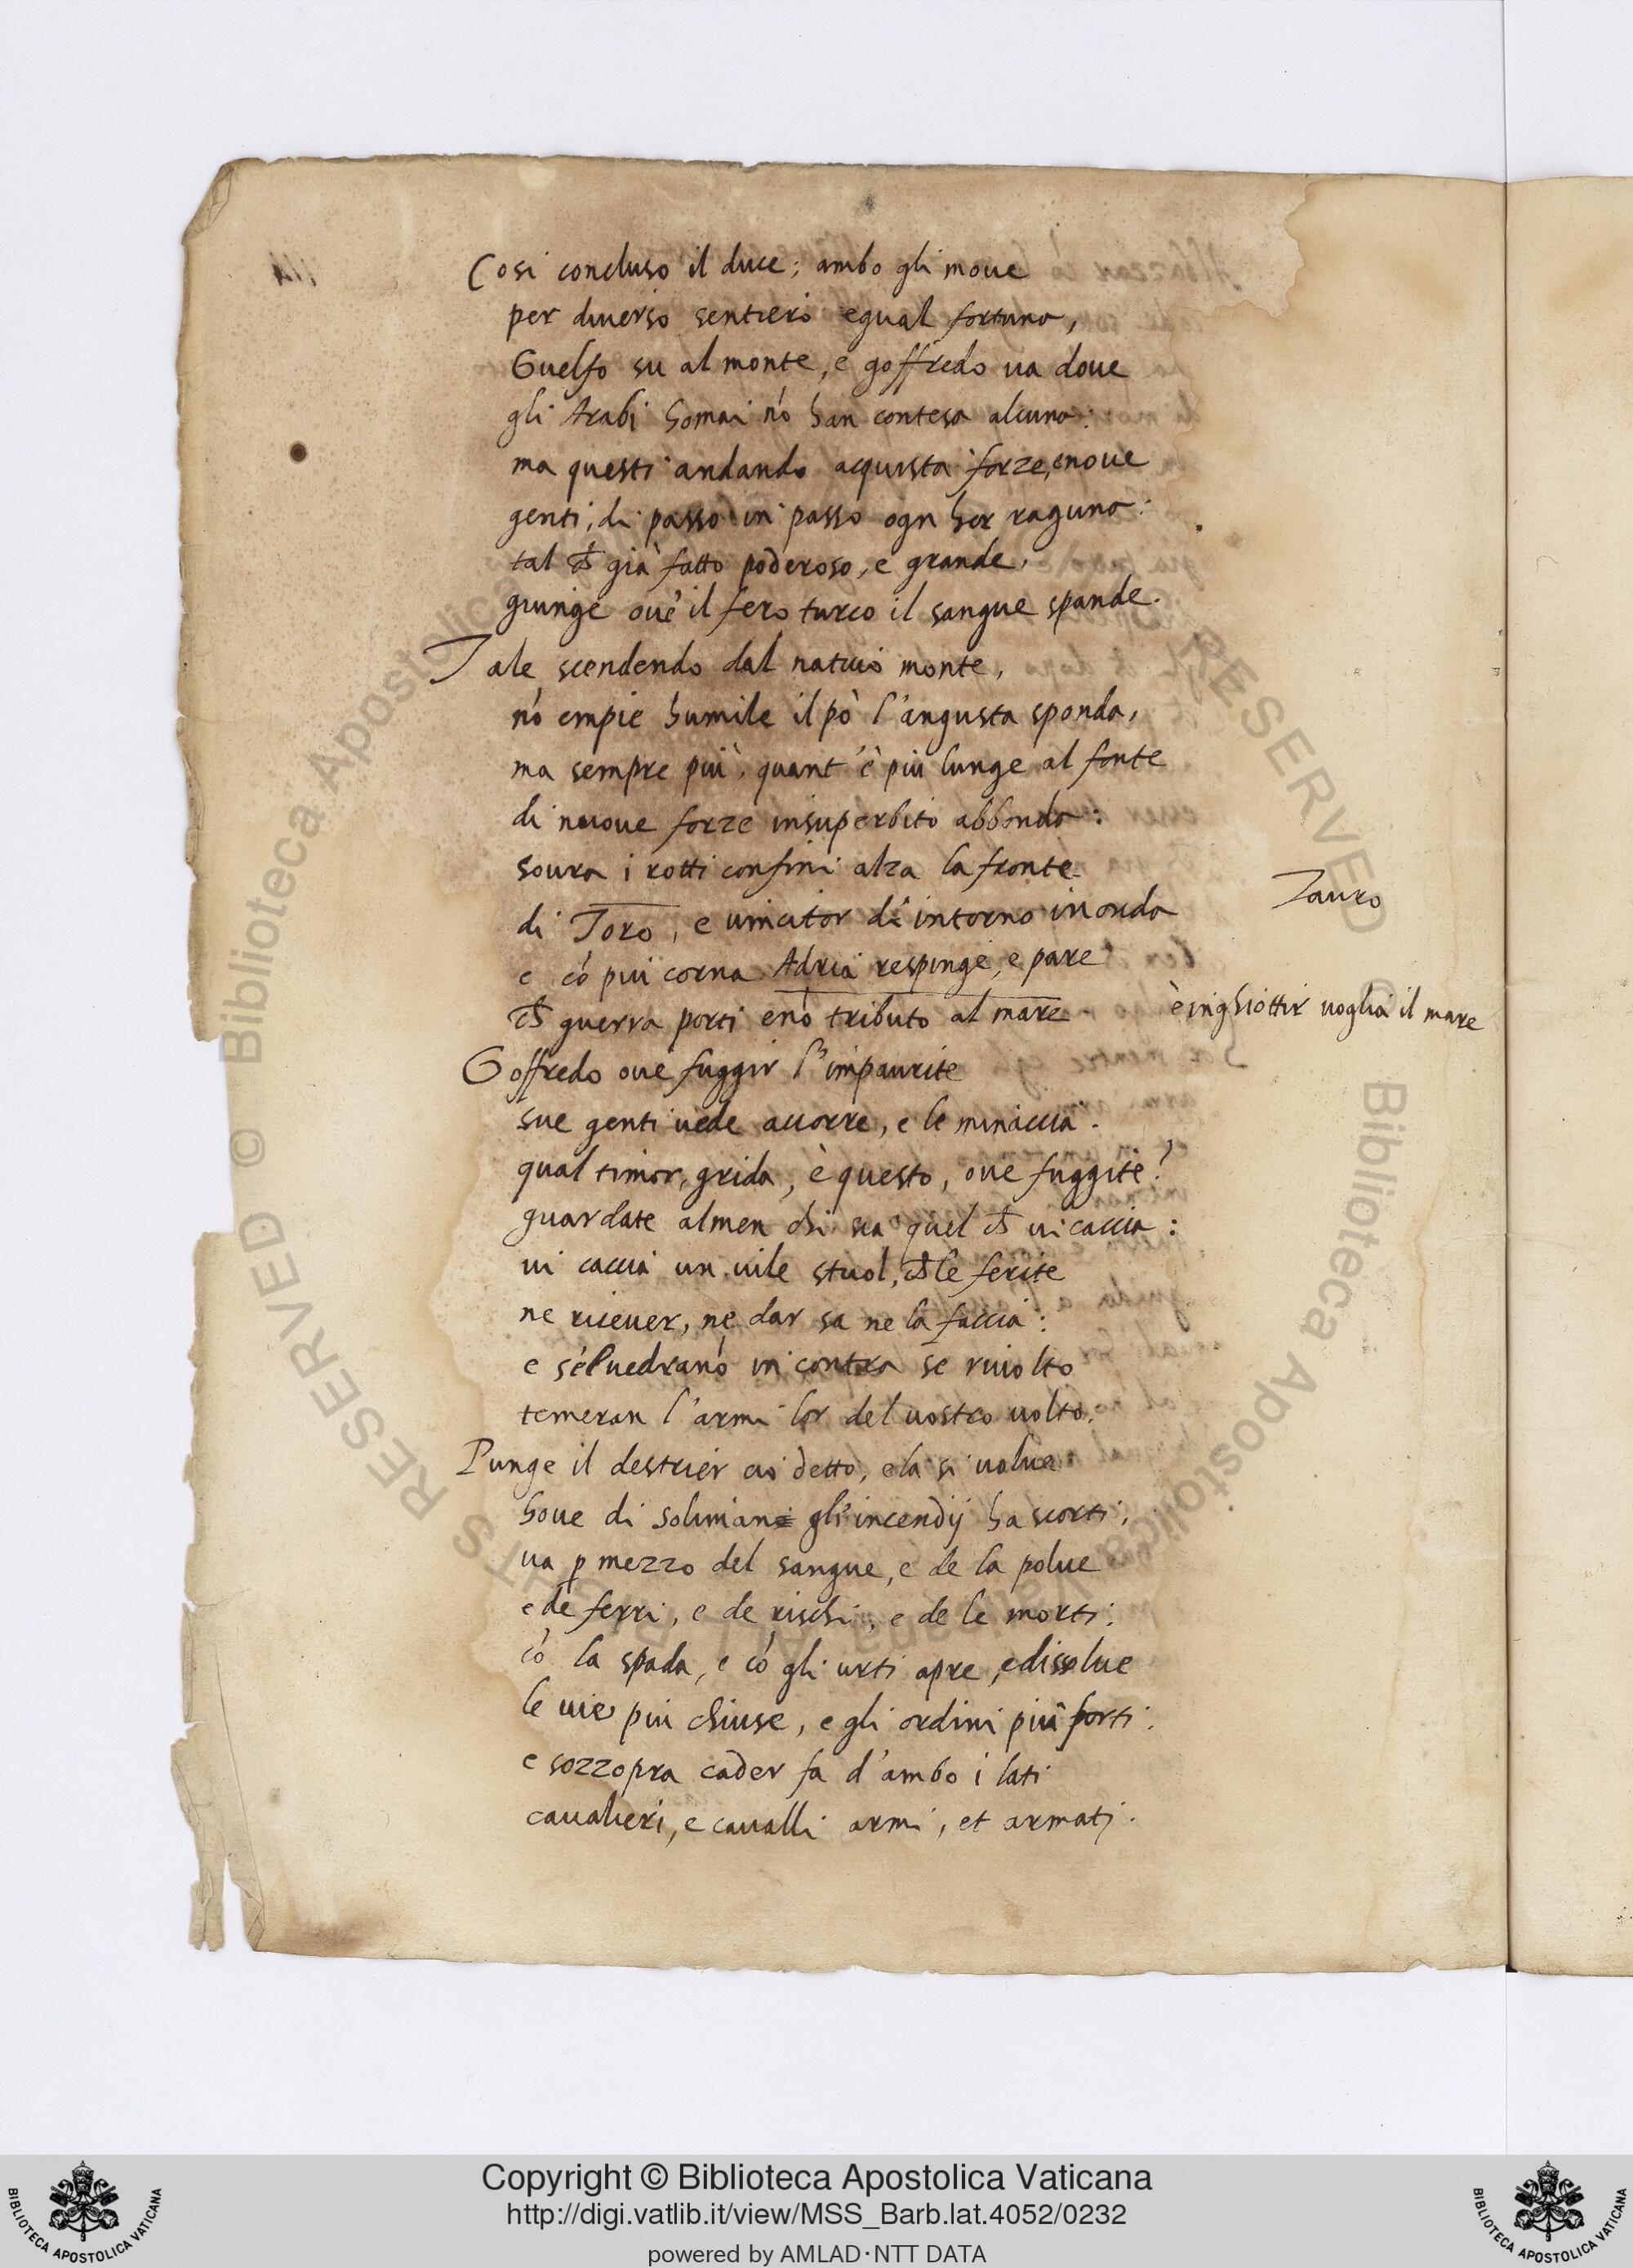 Cosi concluso il duce; ambo gli moue
per diuerso sentiero egual fortuna,
Guelfo su al monte, e goffredo ua doue
gli Arabi homai nó han contesa alcuna:
ma questi andando acquista forze, e noue
genti, di passo in passo ogn hor raguna:
tal ch già fatto poderoso, e grande,
giunge oue il fero turco il sangue spande.
Tale scendendo dal natiuo monte,
nó empie humile il pò l'angusta sponda,
ma sempre più, quant'è più lunge al fonte
di nuoue forze insuperbito abbonda:
soura i rotti confini alza la fronte
di Toro, e uincitor d'intorno inonda
Tauro
e có più corna Adria respinge, e pare
ch guerra porti e nó tributo al mare
è inghiottir uoglia il mare
Goffredo oue fuggir l'impaurite
sue genti uede accorre, e le minaccia.
qual timor, grida, è questo, oue fuggite?
guardate almen chi sia quel ch ui caccia:
ui caccia un uile stuol, ch le ferite
ne riceuer, ne dar sa ne la faccia:
e se'l uedranó in contra se riuolto
temeran l'armi lor del uostro uolto.
Punge il destrier ciò detto, e la si uolue
houe di soliman gl'incendij ha scorti,
ua p mezzo del sangue, e de la polue
e de ferri, e de rischi, e de le morti:
có la spada, e có gli urti apre, e dissolue
le uie più chiuse, e gli ordini più forti:
e sozzopra cader fa d'ambo i lati
caualieri, e caualli armi, et armati.
Copyright © Biblioteca Apostolica Vaticana
http://digi.vatlib.it/view/MSS_Barb.lat.4052/0232
powered by AMLAD·NTT DATA
BIBLIOTECA APOSTOLICA VATICANA
BIBLIOTECA APOSTOLICA VATICANA